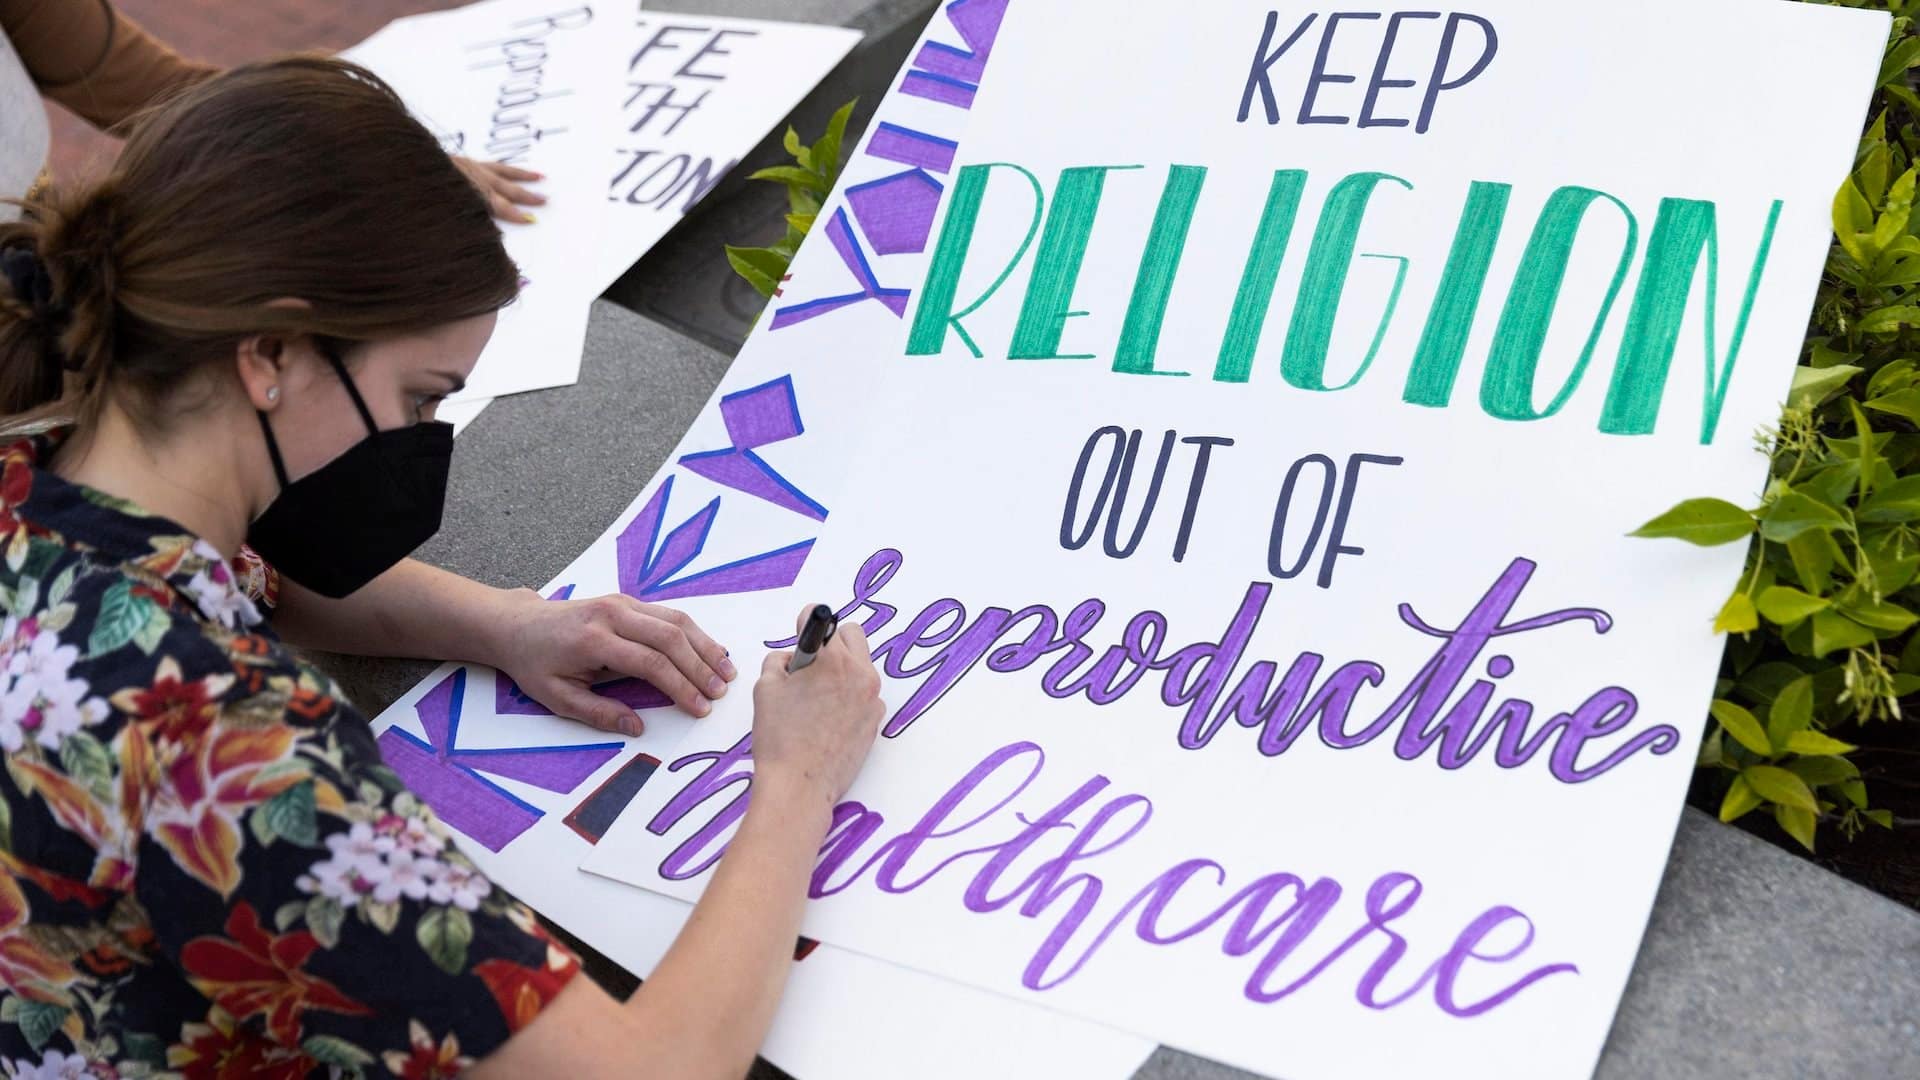 KEEP
RELIGION
OUT OF
reproductive
healthcare
Reproductive
FE
TH
ION